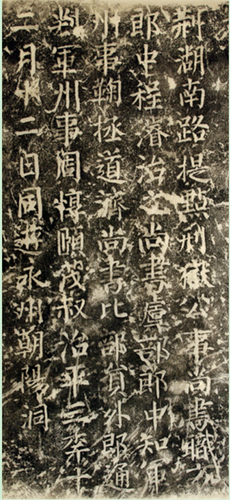 荊湖南路提點刑獄公事尚書職方
郎中程濬治之尚書虞部郎中知軍
州事鞠拯道濟尚書比部員外郎通
判軍州事周惇頤茂叔治平三年十
二月十二日同遊永州朝陽洞